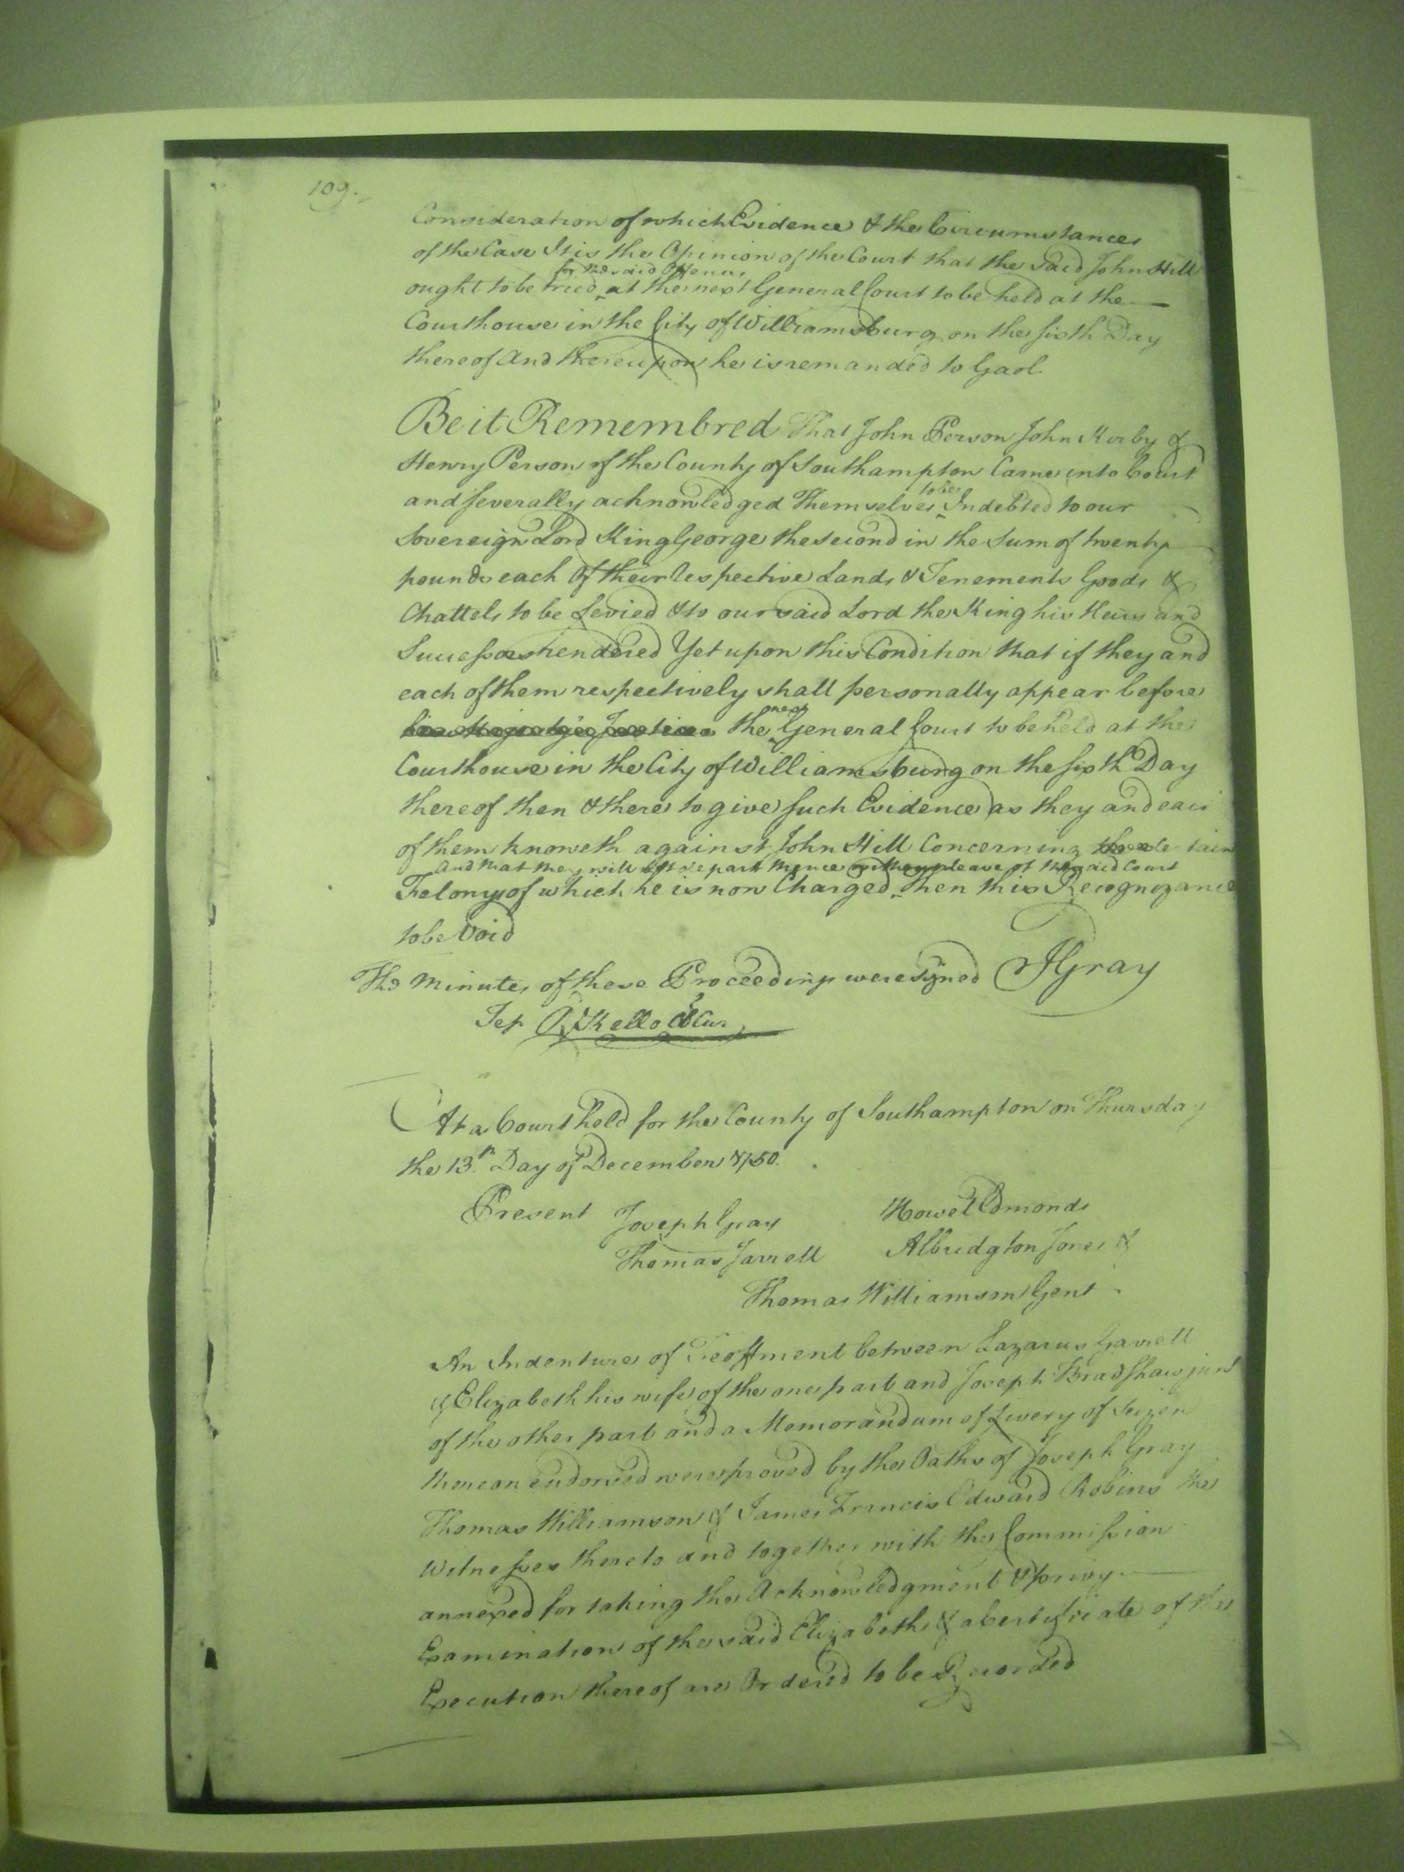 109.
Consideration of which Evidence & the Circumstances
of the Case It is the Opinion of the Court that the said John Hill
for the said Offence
ought to be tried at the next General Court to be held at the
Courthouse in the City of Williamsburg on the sixth Day
thereof And thereupon he is remanded to Gaol.
Be it Remembred That John Person John Kirby &
Henry Person of the County of Southampton Came into Court
to be
and severally acknowledged Themselves Indebted to our
Sovereign Lord King George the second in the Sum of twenty
pounds each Of their respective Lands & Tenements Goods &
Chattels to be Levied & to our said Lord the King his Heirs and
Successors rendered Yet upon this Condition that if they and
each of them respectively shall personally appear before
next
his Majestys Justices the General Court to be held at the
Courthouse in the City of Williamsburg on the sixth Day
thereof then & there to give such Evidence as they and each
of them knoweth against John Hill Concerning certain
And that they will not depart thence without leave of the said Court
Felony of which he is now Charged then this Recognizance
to be Void
The Minutes of these Proceedings were signed JGray
Test R Kello Cl Cur
At a Court held for the County of Southampton on Thursday
the 13.th Day of December 1750.
Present Joseph Gray Howel Edmonds
Thomas Jarrell Albridgton Jones &
Thomas Williamson Gent
An Indenture of Feoffment between Lazarus Garrell
& Elizabeth his wife of the one part and Joseph Bradshaw junr
of the other part and a Memorandum of Livery of Seizen
thereon endorsed were proved by the Oaths of Joseph Gray
Thomas Williamson & James Francis Edward Robins the
Witnesses thereto and together with the Commission
annexed for taking the Acknowledgment & privy
Examination of the said Elizabeth & a Certificate of the
Execution thereof are Ordered to be Recorded